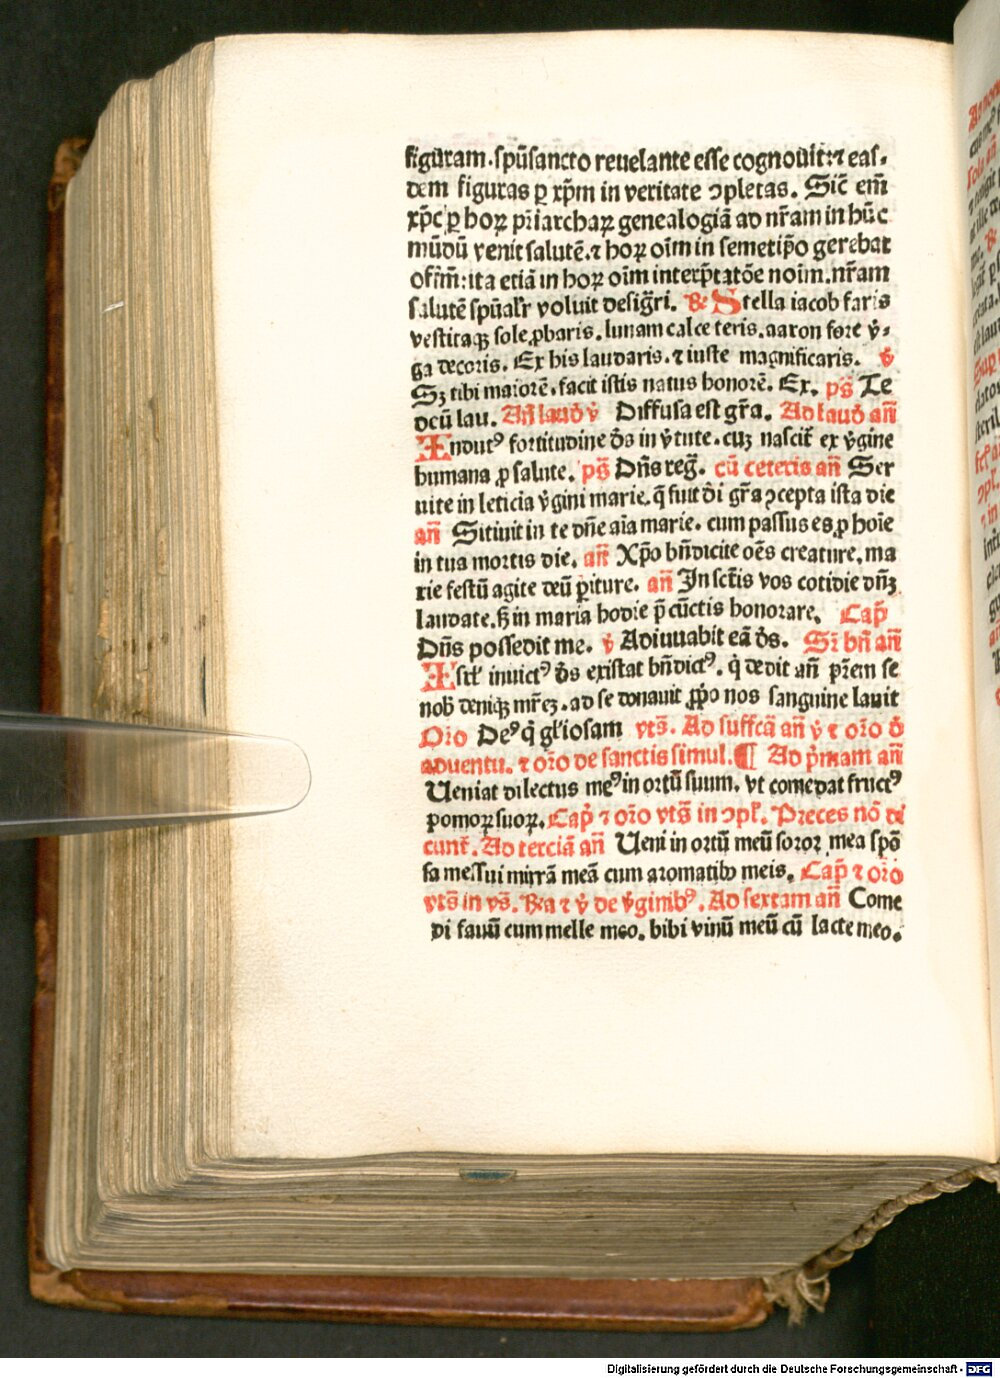 figuram. spūsancto reuelante esse cognouit: ⁊ eas-
dem figuras ꝑ xp̄m in veritate ↄpletas. Sic̄ em̄
xp̄c ꝑ hoꝝ pr̄iarchaꝝ genealogiā ad nr̄am in hūc
mūdū venit salutē. ⁊ hoꝝ oīm in semetip̄o gerebat
ita etiā in hoꝝ oīm interp̄tatōe noīm. nr̄am
salutē spūalr̄ voluit desiḡri. R Stella iacob faris
vestitaqꝫ sole ꝓbaris. lunam calce teris. aaron fore v̓-
ga decoris. Ex his laudaris. ⁊ iuste magnificaris. v̓
Sꝫ tibi maiorē. facit istis natus honorē. Ex. ps̄ Te
deū lau. Añ laud̓ v̓ Diffusa est gr̄a. Ad laud̓ añ
Indutꝰ fortitudine d̄s in v̓tute. cuꝫ nascit̄ ex v̓gine
humana ꝓ salute. ps̄ Dn̄s reḡ. cū ceteris añ Ser
uite in leticia v̓gini marie. q̄ fuit d̄i gr̄a ↄcepta ista die
añ Sitiuit in te dn̄e aīa marie. cum passus es ꝓ hoīe
in tua mortis die. añ Xp̄o bn̄dicite oēs creature. ma
rie festū agite deū ꝑiture. añ In sct̄is vos cotidie dn̄ꝫ
laudate. sꝫ in maria hodie p̄ cūctis honorare. Cap̄
Dn̄s possedit me. v̓ Adiuuabit eā d̄s. Sꝛ bn̄ añ
Isrl̓ inuictꝰ d̄s existat bn̄dictꝰ. q̓ dedit añ pr̄em se
nob̓ deniqꝫ mr̄eꝫ. ad se donauit ꝓp̄o nos sanguine lauit
Or̄o Deꝰ q̓ gl̓iosam vts̄. Ad suffcā añ v̓ ⁊ or̄o d̓
aduentu. ⁊ or̄o de sanctis simul. ¶ Ad p̓mam añ
Ueniat dilectus meꝰ in ortū suum. vt comedat fructꝰ
pomoꝝ suoꝝ. Cap̓ ⁊ or̄o vts̄ in ↄpl̓. Preces nō di
cunt̄. Ad terciā añ Ueni in ortū meū soror mea spō
sa messui mirrā meā cum aromatibꝫ meis. Cap̄ ⁊ or̄o
vts̄ in vs̄. Rꝛa ⁊ v̓ de v̓ginibꝰ. Ad sextam añ Come
di fauū cum melle meo. bibi vinū meū cū lacte meo.
Digitalisierung gefördert durch die Deutsche Forschungsgemeinschaft - DFG